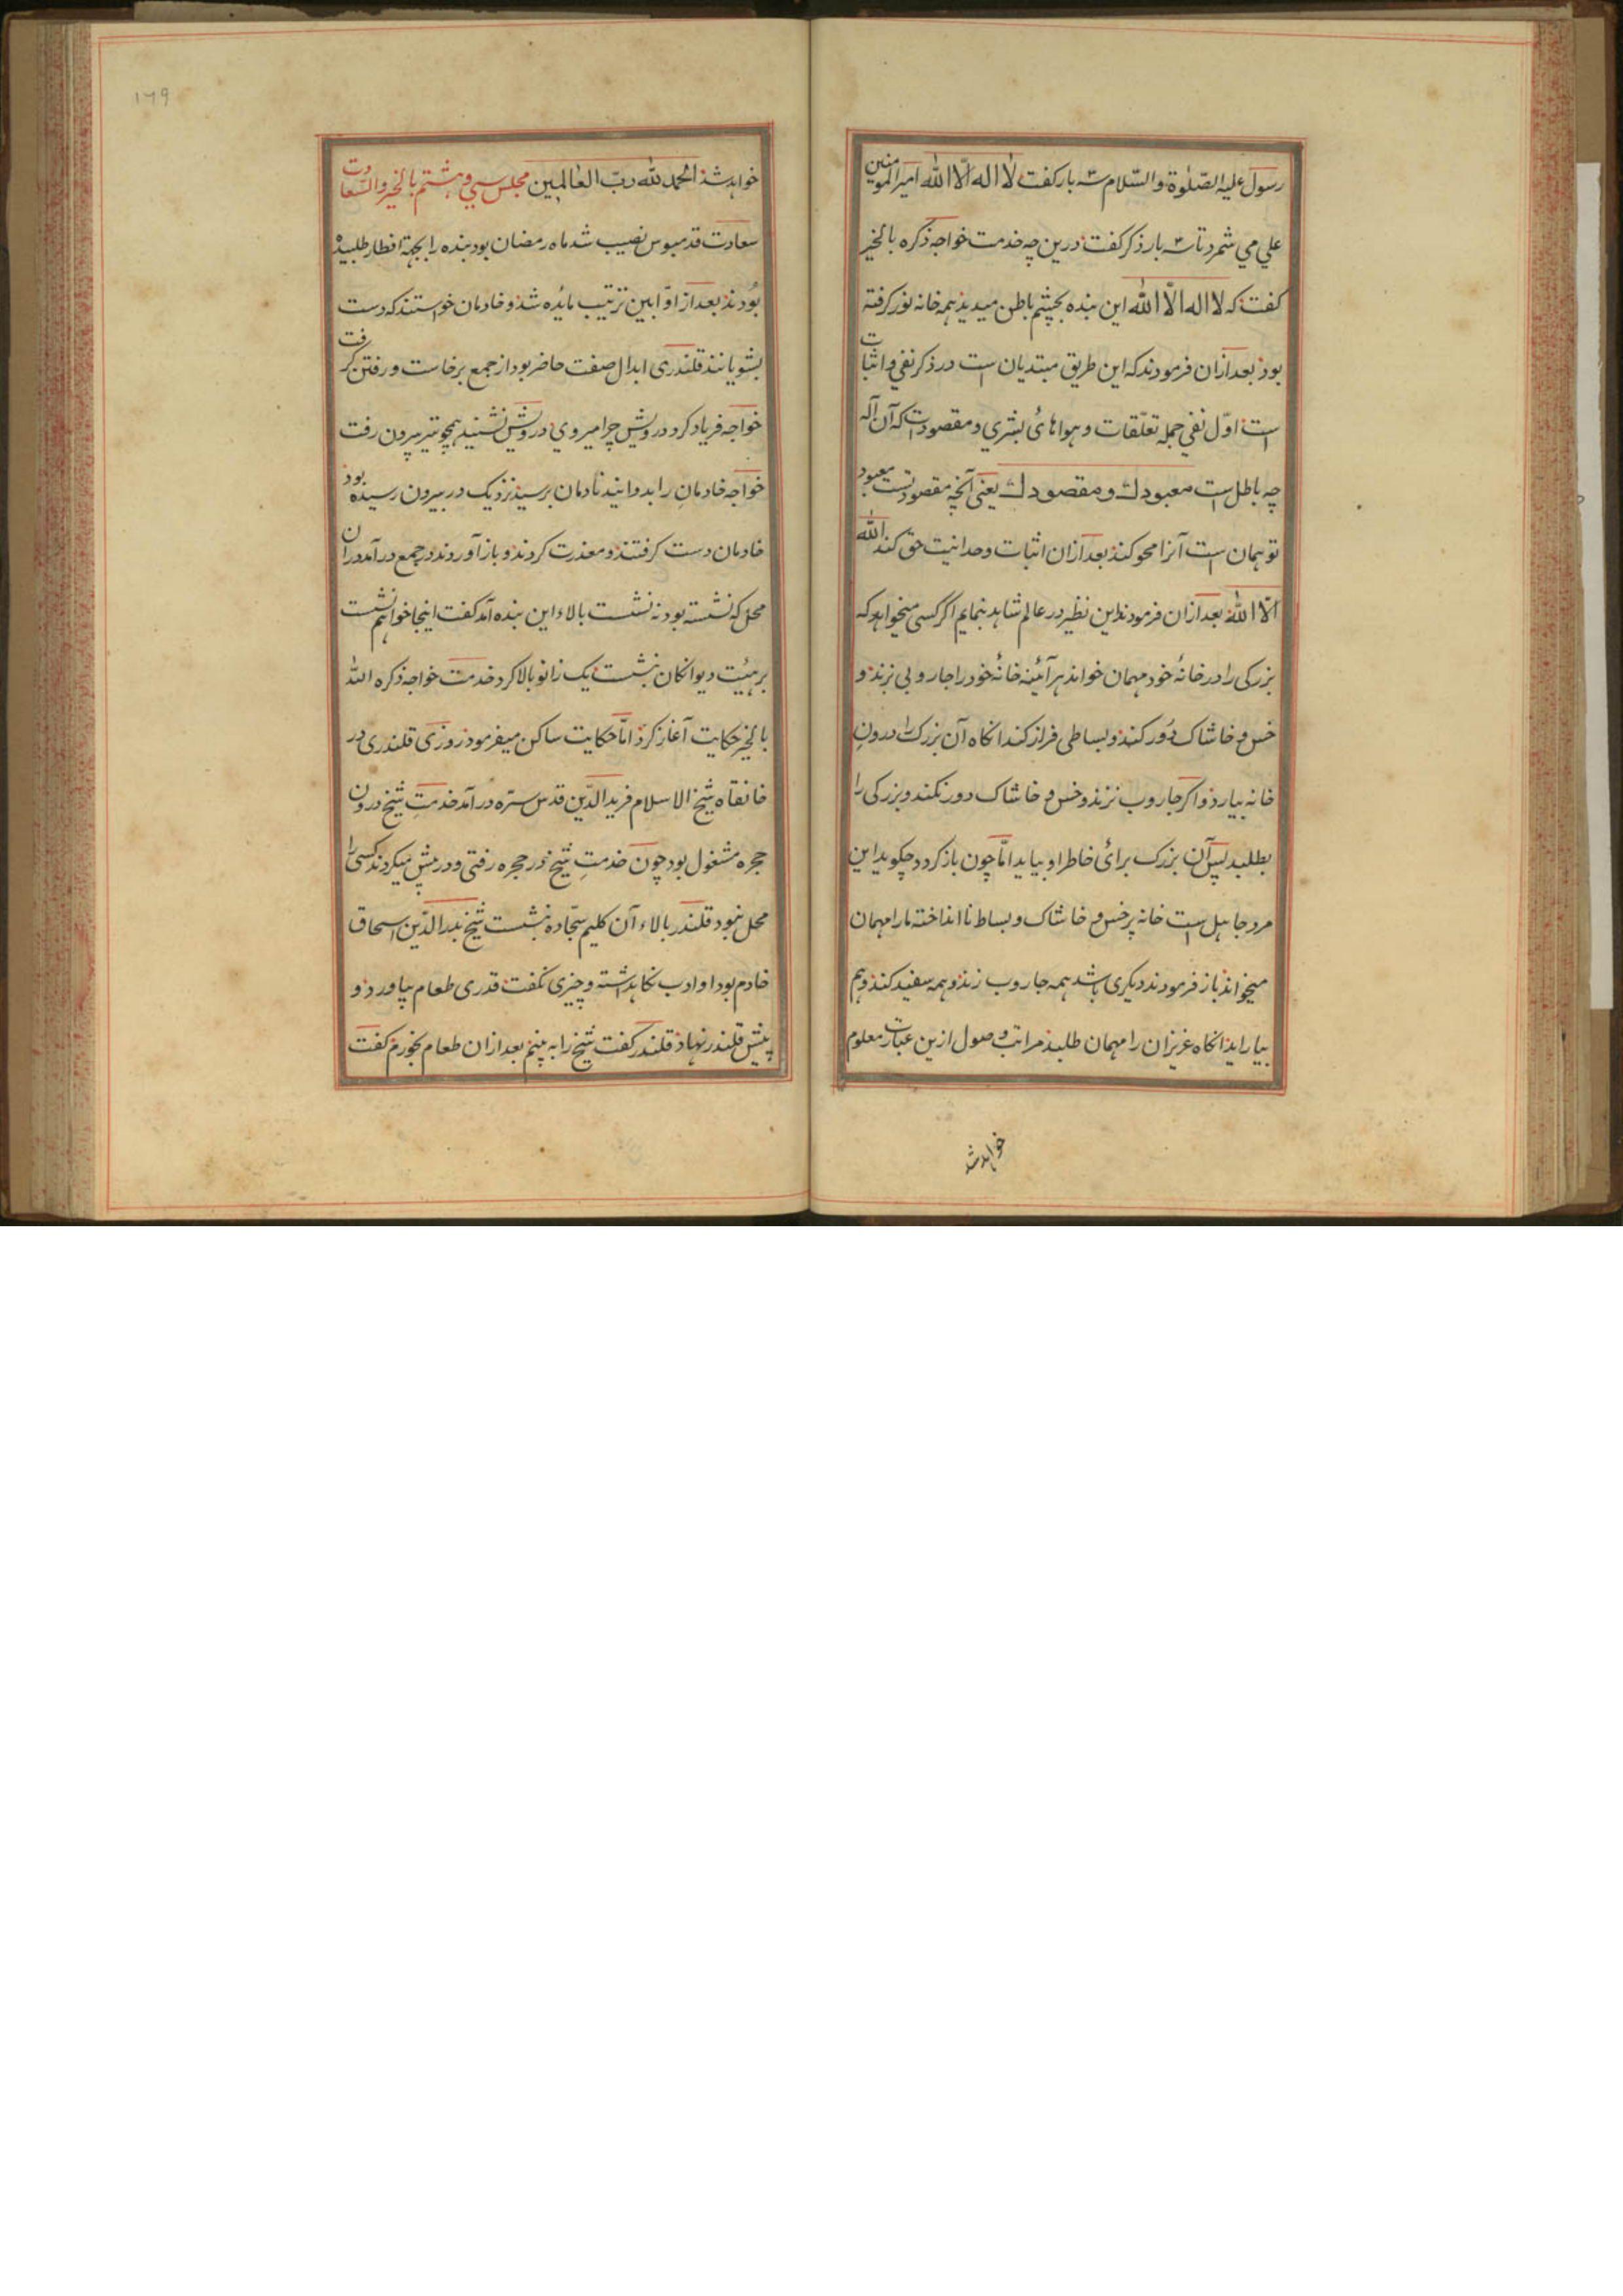 رسول علیه الصّلوة والسّلام سه بار کفت لا اله الّا الله امیر المومنین
علي مي شمرد تا سه بار ذکر کفت درین چه خدمت خواجه ذکره بالخیر
کفت که لا اله الّا الله این بنده بچشم باطن میدید همه خانه نور کرفته
بوذ بعد ازان فرمودند که این طریق مبتدیان است در ذکر نفي و اثبات
است اوّل نفي جمله تعلّقات و هواهائ بشري و مقصودات که آن آله
چه باطل است معبودك و مقصودك یعنی آنچه مقصود تست معبود
تو همان است آنرا محو کند بعد ازان اثبات وحدانیت حق کند الله
الّا الله بعد ازان فرمودند این نظیر در عالم شاهد بنمایم اکر کسی میخواهد که
بزرکی را در خانهٔ خود مهمان خواند هر آئینه خانهٔ خود را جاروبی بزند و
خس و خاشاک دُور کند و بساطی فراز کند انکاه آن بزرک را درونِ
خانه بیارد و اکر جاروب نزند و خس و خاشاک دور نکند و بزرکی را
بطلبد پس آن بزرک برائ خاطر او بیاید امّا چون باز کردد چکوید این
مرد جاهل است خانه پر خس و خاشاک و بساط نا انداخته ما را مهمان
میخواند باز فرمودند دیکری باشد همه جاروب زند و همه سفید کند و هم
بیاراید انکاه عزیزان را مهمان طلبد مراتب وصول ازین عبارت معلوم
خواهد شد
۱۶۹
خواهد شد الحمد لله ربّ العالمین مجلس سي و هشتم بالخیر والسّعادت
سعادت قدمبوس نصیب شد ماه رمضان بود بنده را بجهة افطار طلبیده
بُودند بعد از اوّابین ترتیب مایُده شد و خادمان خواستند که دست
بشویانند قلندری ابدال صفت حاضر بود از جمع برخاست و رفتن کرفت
خواجه فریاد کرد درویش چرا میروي درویش نشنید همچو تیر بیرون رفت
خواجه خادمانِ را بدوانید تا دمان برسید نزدیک در بیرون رسیده بود
خادمان دست کرفتند و معذرت کردند و باز آوردند در جمع درآمد در ان
محل که نشسته بود نه نشست بالاء این بنده آمد کفت اینجا خواهم نشست
بر هیُت دیوانکان بنشست یک زانو بالا کرد خدمت خواجه ذکره الله
بالخیر حکایت آغاز کرد امّا حکایت ساکن میفرمود روزی قلندری در
خانقاه شیخ الاسلام فرید الدّین قدس سرّه درآمد خدمتِ شیخ درون
حجره مشغول بود چون خدمتِ شیخ در حجره رفتی و در پیش میکردند کسی را
محل نبود قلندر بالاء آن کلیم سجّاده بنشست شیخ بدر الدّین اسحاق
خادم بود او ادب نکاهداشته و چیزی نکفت قدری طعام بیاورد و
پیش قلندر نهاد قلندر کفت شیخ را به بینم بعد ازان طعام بخورم کفت